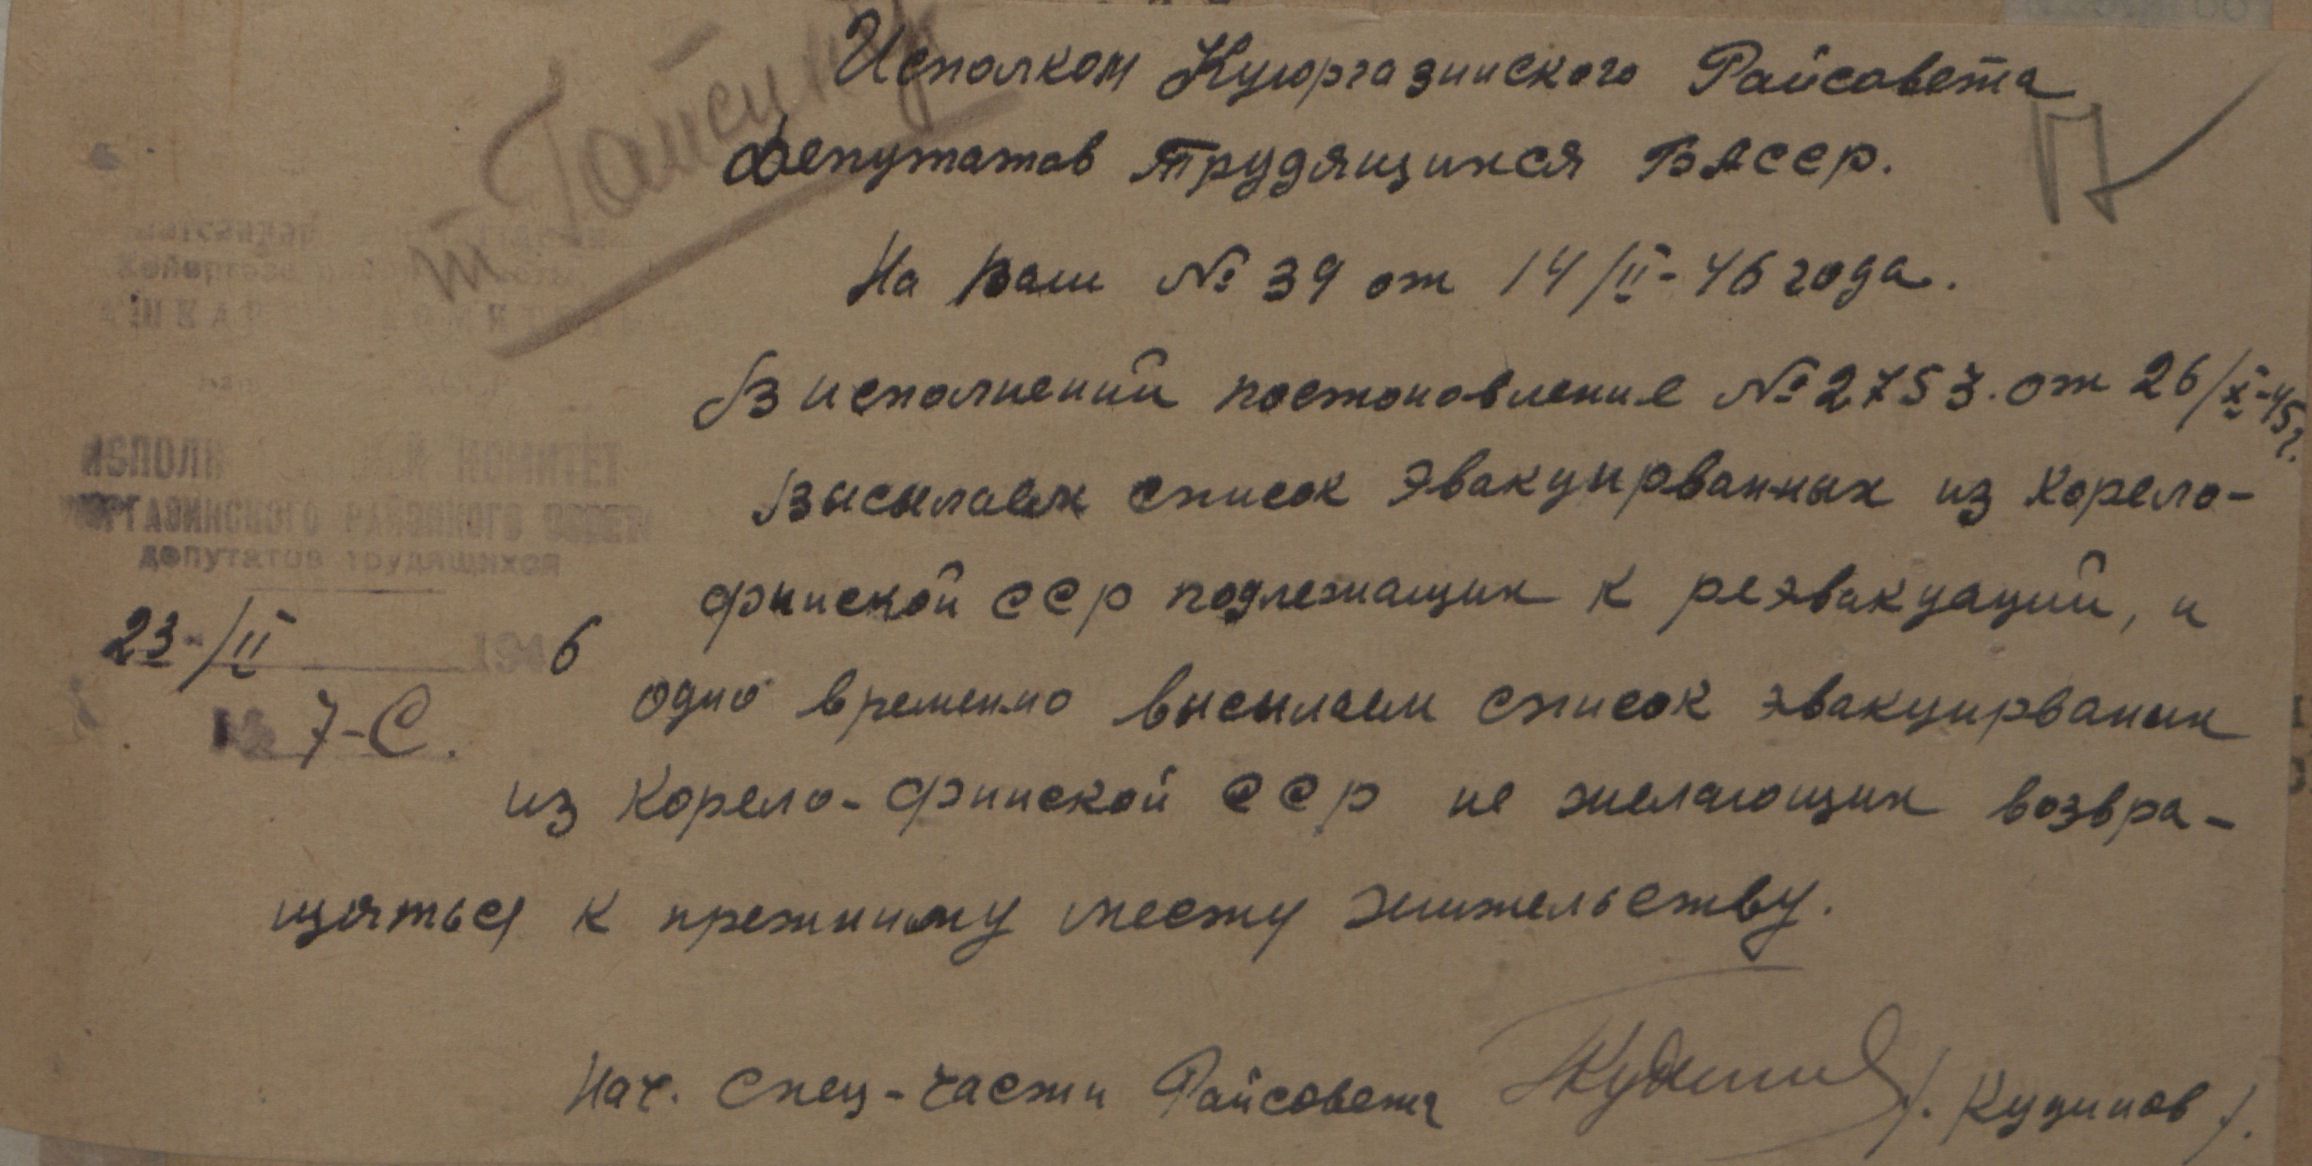 т. Гайсину
Исполком Куюргазинского Райсовета
Депутатов Трудящихся БАССР.
На Ваш № 39 от 14/II-46 года.
В исполнений постоновление № 2753. от 26/X-45 г.
Высылаем список Эвакуирванных из Корело-
финской ССР подлежащих к реэвакуаций, и
одно временно высылаем список эвакуирваных
из Корело-Финской ССР не желающих возвра-
щяться к прежниму месту жительству.
Нач. Спец-части Райсовета /. Кудинов /.
ИСПОЛН КОМИТЕТ
ЮРГАЗИНСКОГО РАЙОННОГО СОВЕТА
депутатов трудящихся
23-/II 1946
№ 7-С.